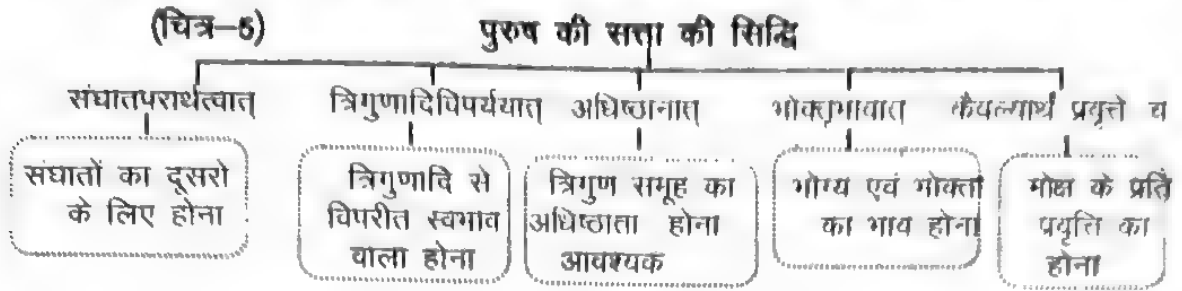 (चित्र-5) पुरुष की सत्ता की सिद्धि
संघातपरार्थत्वात् त्रिगुणादिविपर्ययात् अधिष्ठानात् भोक्तृभावात कैवल्यार्थ प्रवृत्ते च
संघातों का दूसरो
के लिए होना
त्रिगुणादि से
विपरीत स्वभाव
वाला होना
त्रिगुण समूह का
अधिष्ठाता होना
आवश्यक
भोग्य एवं भोक्ता
का भाव होना
मोक्ष के प्रति
प्रवृत्ति का
होना